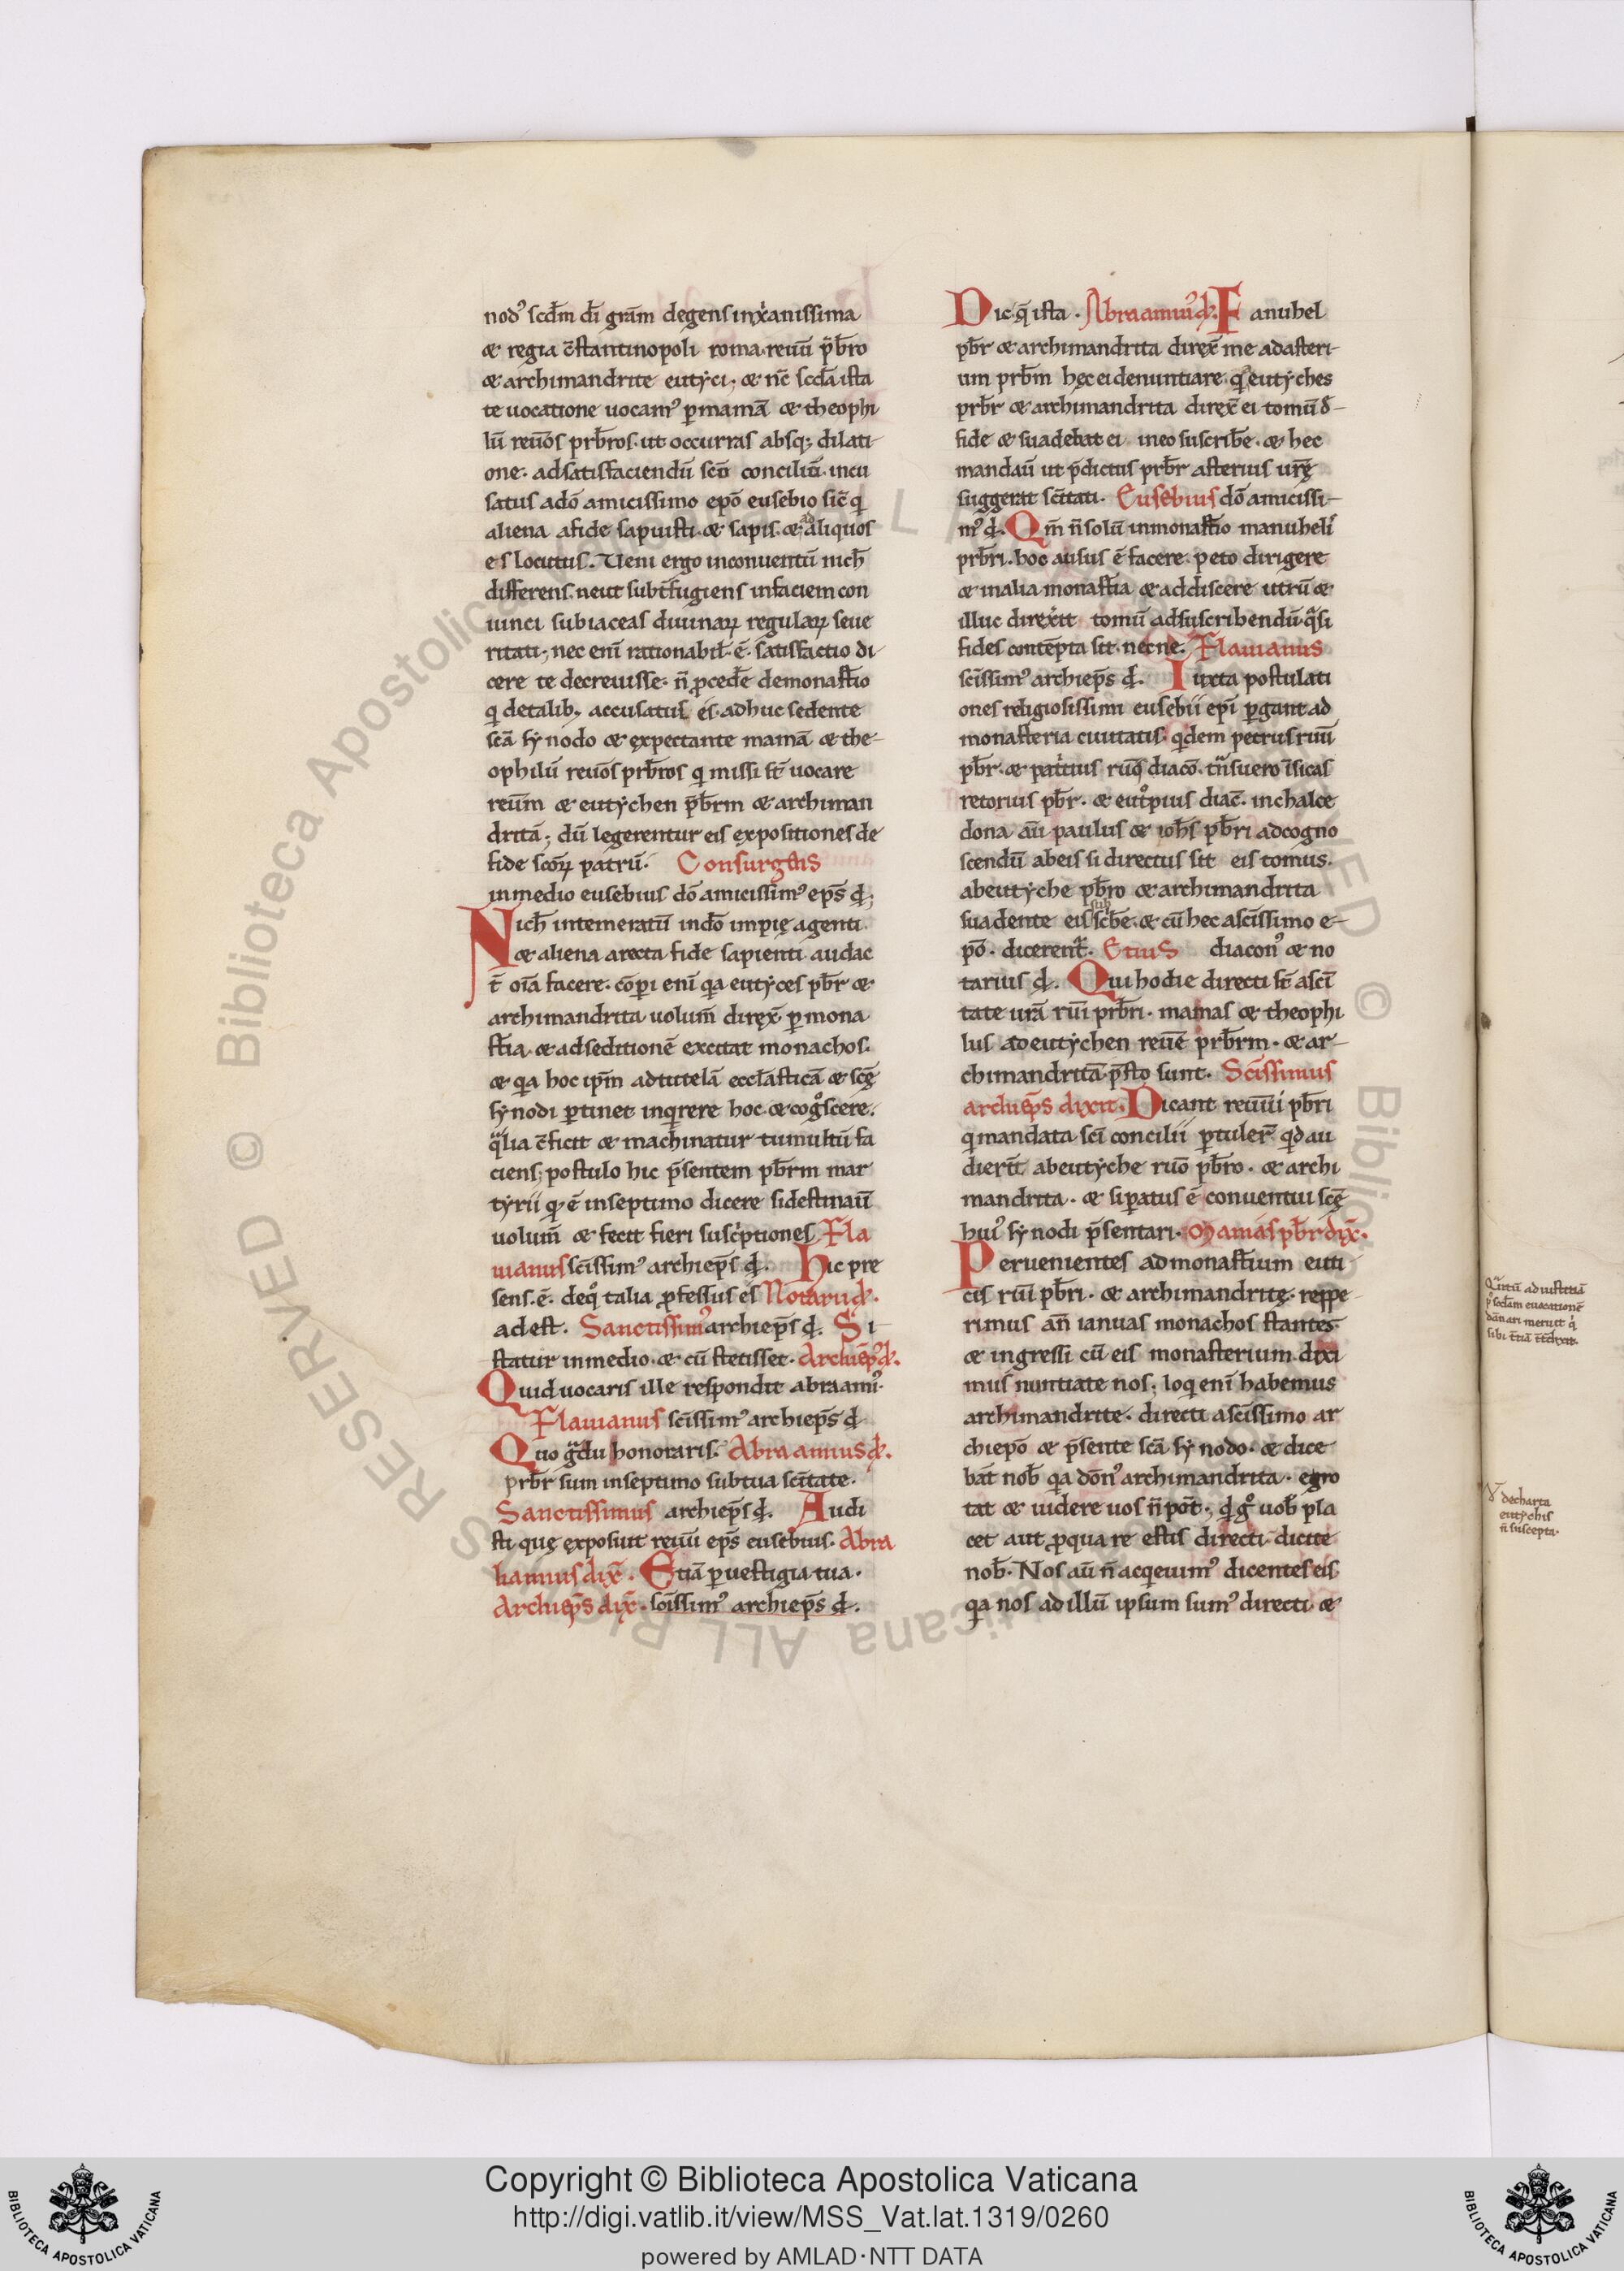 nod᾽ scd̄m dī grām degens in xp̄ianissima
& regia c̄stantinopoli roma. reuū pb̄ro
& archimandrite eutẏci, & nc̄ scd̄a ista
te uocatione uocam᾽ p̱ mamā & theophi
lū reuōs prb̄ros. ut occurras absq; dilati
one. ad satisfaciendū scō conciliū. incu
satus a dō amicissimo epō eusebio sic̄ q̇
aliena a fide sapuisti. & sapis. & ad aliquos
es locutus. Veni ergo in conuentū nich̄
differens. ne ut subt̄fugiens in faciem con
uinci subiaceas diuinaꝝ regulaꝝ seue
ritati, nec enī rationabil̄. ē. satisfactio di
cere te decreuisse. n̄ ꝓcede᷒ de monast̄io
q̇ de talib᾽, accusatus es. adhuc sedente
scā sẏnodo & expectante mamā & the-
ophilū reuōs prb̄ros q̇ missi st̄ uocare
reūm & eutẏchen pb̄rm & archiman
dritā; dū legerentur eis expositiones de
fide scōꝝ patrū. Consurgēs
in medio eusebius dō amicissim᾽ ep̄s ꝺ;
Nich̄ intemeratū in dō impię agenti.
& aliena a recta fide sapienti. audac
t̄ oīa facere. cōpi enī qa eutẏces pb̄r &
archimandrita uolum̄ direx̄. p̱ mona
st̄ia. & ad seditionē excitat monachos.
& qa hoc ipm̄ ad tutelā eccl̄asticā & scę̄
sẏnodi p̱tinet inqirere hoc. & cogoscere.
qalia c̄ficit & machinatur tumultū fa
ciens; postulo hic p̄sentem pb̄rm mar
tẏrii q̇ ē in septimo dicere si destinauī
uolum̄ & fecit fieri suscⁱptiones Fla
uianus scīssim᾽ archiep̄s ꝺ. Hic pre
sens. ē. de q° talia ꝓfessus es Notarii ꝺ.
adest. Sanctissim᾽ archiep̄s ꝺ. Si-
statur in medio. & cū stetisset. Archiep̄s ꝺ.
Quid uocaris ille respondit abraami᾽
Flauianus scīssim᾽ archiep̄s ꝺ
Quo gᵃdu honoraris. Abraamius ꝺ.
prb̄r sum in septimo sub tua scītate.
Sanctissimus archiep̄s ꝺ. Audi
sti quę exposuit reuū ep̄s eusebius. Abra
hamius dix̄. Etiā p̱ uestigia tua.
Archiep̄s dix̄. scīssim᾽ archiep̄s ꝺ.
Dic. q̄ ista. Abraamiu᾽ ꝺ. Fanuhel
pb̄r & archimandrita direx̄ me ad asteri-
um prb̄m hęc ei denuntiare. q̇ eutẏches
prb̄r & archimandrita direx̄ ei tomū d̄-
fide & suadebat ei in eo suscribe᷒. & hec
mandauī ut p̄dictus prb̄r asterius urę̄
suggerat scītati. Eusebius dō amicissi-
m᾽ ꝺ. Qm̄ n̄ solū in monast̄io manuheli
prb̄ri. hoc ausus ē facere. peto dirigere
& in alia monast̄ia & addiscere utrū &
illuc direxit tomū ad suscribendū. qᵃsi
fides contēpta sit. necne. Flauianus
scīssim᾽ archiep̄s ꝺ. Iuxta postulati
ones religiosissimi eusebii epī p̱gant ad
monasteria ciuitatis. q̇dem petrus riuū
pb̄r. & patⁱtius ruōs diacō. tn̄suero īsicas
retorius pb̄r. & eut°pius diac̄. in chalce
dona. aū paulus & ioh̄s pb̄ri ad cogno
scendū ab eis si directus sit eis tomus.
ab eutẏche pb̄ro & archimandrita
suadente eis subscb̄e. & cū hec a scīssimo e-
pō. dicerent̄. Etius diacon᾽ & no
tarius ꝺ. Qui hodie directi st̄ a scī
tate urā ruī prb̄ri. mamas & theophi
lus ad eutẏchen reuē prb̄rm. & ar-
chimandritā. p̄sto sunt. Scīssimus
archiep̄s dixit. Dicant reuūi pb̄ri
q̇ mandata scī concilii p̱tuler̄. qd au
dierīt ab eutẏche ruō pb̄ro. & archi
mandrita. & si paratus ē conuentui scę̄
hui᾽ sẏnodi p̄sentari. Mamas pb̄r dix̄.
Peruenientes ad monast̄ium euti
cis ruī pb̄ri. & archimandritę. reppe
rimus an̄ ianuas monachos stantes.
& ingressi cū eis monasterium dixi
mus nuntiate nos; loq̇ enī habemus
archimandrite. directi a scīssimo ar
chiepō & p̄sente scā sẏnodo. & dice
bāt nob̄ qa dōn᾽ archimandrita. egro
tat & uidere uos n̄ pōt; ꝗ g° uob̄ pla
cet aut ꝓ qua re estis directi. dicite
nob̄. Nos aū n̄ acq̇euim᾽ dicentes eis
qa nos ad illū ipsum sum᾽ directi. &
Qᵃntū ad iustitiā
p᾽ scd̄am euocationē
dānari meruit q̇
sibi
de charta
eutẏchis
n̄ suscepta.
© Biblioteca Apostolica Vaticana ALL RIGHTS RESERVED
Copyright © Biblioteca Apostolica Vaticana
http://digi.vatlib.it/view/MSS_Vat.lat.1319/0260
powered by AMLAD·NTT DATA
BIBLIOTECA APOSTOLICA VATICANA
BIBLIOTECA APOSTOLICA VATICANA